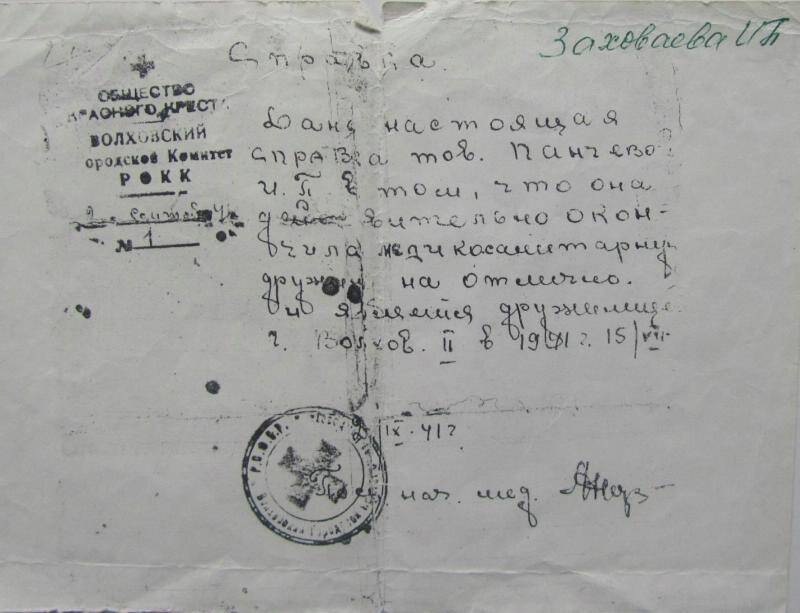 Заховаева И П
Справка.
ОБЩЕСТВО
КРАСНОГО КРЕСТА
ВОЛХОВСКИЙ
городской Комитет
РОКК
№ 1
Дана настоящая
справка тов. Панчево
И. П. в том, что она
действительно окон-
чила медикосанитарну
дружин на отлично.
и является дружинице
г. Волхов. II в 1941 г. 15/VIII
IX. 41 г
Р.С.Ф.С.Р.
нач. мед.